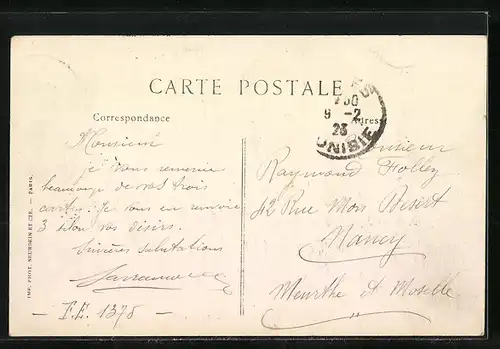 CARTE POSTALE
Correspondance
Adresse
9 -2
23
TUNISIE
Monsieur
je vous remercie
beaucoup de vos trois
cartes. Je vous en renvoie
3 selon vos désirs.
Sincères salutations
- F.E. 1378 -
Monsieur
Raymond Folley
42 Rue Mon Désert
Nancy
Meurthe et Moselle
IMP. PHOT. NEURDEIN ET CIE. — PARIS.